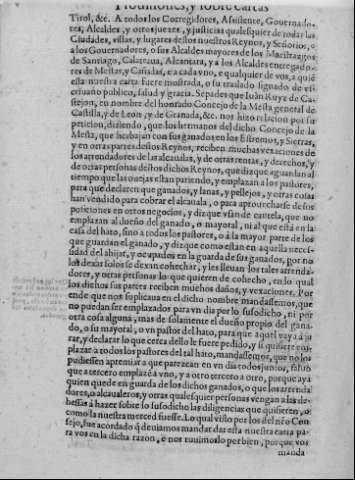 Prouisiones, y sobre cartas
Tirol, &c. A todos los Corregidores, Assistente, Gouernado-
res, Alcaldes, y otros juezes, y justicias qualesquier de todas las
Ciudades, villas, y lugares destos nuestros Reynos, y Señorios, o
a los Gouernadores, o sus Alcaldes mayores de los Maestrazgos
de Santiago, Calatraua, Alcantara, y a los Alcaldes entregado-
res de Mestas, y Cañadas, e a cada vno, e qualquier de vos, a quié
esta nuestra carta fuere mostrada, o su traslado signado de es-
criuano publico, salud y gracia. Sepades que Iuan Ruyz de Ca-
stejon, en nombre del honrado Concejo de la Mesta general de
Castilla, y de Leon, y de Granada, &c. nos hizo relacion por su
peticion, diziendo, que los hermanos del dicho Concejo de la
Mesta, que heruajan con sus ganados en los Estremos, y Sierras,
y en otras partes destos Reynos, reciben muchas vexaciones de
los arrendadores de las alcaualas, y de otras rentas, y derechos, y
de otras personas destos dichos Reynos, que dizque aguardan al
tiempo que las ouejas estan pariendo, y emplazan a los pastores,
para que declaren que ganados, y lanas, y pellejos, y otras cosas
han vendido para cobrar el alcauala, o para aprouecharse de sus
posiciones en otros negocios, y dizque vsan de cautela, que no
emplazan al dueño del ganado, o mayoral, ni al que está en la
casa del hato, sino a todos los pastores, o a la mayor parte de los
que guardan el ganado, y dizque como estan en aquella neces-
sidad del ahijar, y ocupados en la guarda de sus ganados, por no
los dexar solos se dexan cohechar, y les lleuan los tales arrenda-
dores, y otras personas lo que quieren de cohecho, en lo qual
los dichos sus partes reciben muchos daños, y vexaciones. Por
ende que nos suplicaua en el dicho nombre mandassemos, que
no puedan ser emplazados para vn dia por lo susodicho, ni por
otra cosa alguna, mas de solamente el dueño propio del gana-
do, o su mayoral, o vn pastor del hato, para que aquel vaya a ju
rar, y declarar lo que cerca dello le fuere pedido, y si quisiere em-
plazar a todos los pastores del tal hato, mandassemos, que no los
pudiessen apremiar a que parezcan en vn dia todos juntos, saluo
que a tercero emplaze a vno, y a otro tercero a otro, porque aya
quien quede en guarda de los dichos ganados, o que los arrenda
dores, o alcaualeros, y otras qualesquier personas vengan a las de-
hessas à hazer sobre lo susodicho las diligencias que quisieren, o
como la nuestra merced fuesse. Lo qual visto por los del nro Con
sejo, fue acordado q̃ deuiamos mandar dar esta nuestra carta pa-
ra vos en la dicha razon, e nos tuuimoslo por bien, porque vos
manda